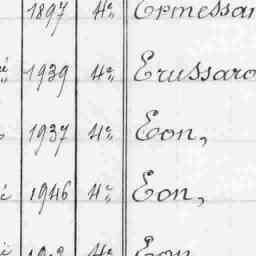 1897 4e Ermessan
1939 4e Erussaro
1937 4e Eon,
1946 4e Eon,
4e Eon